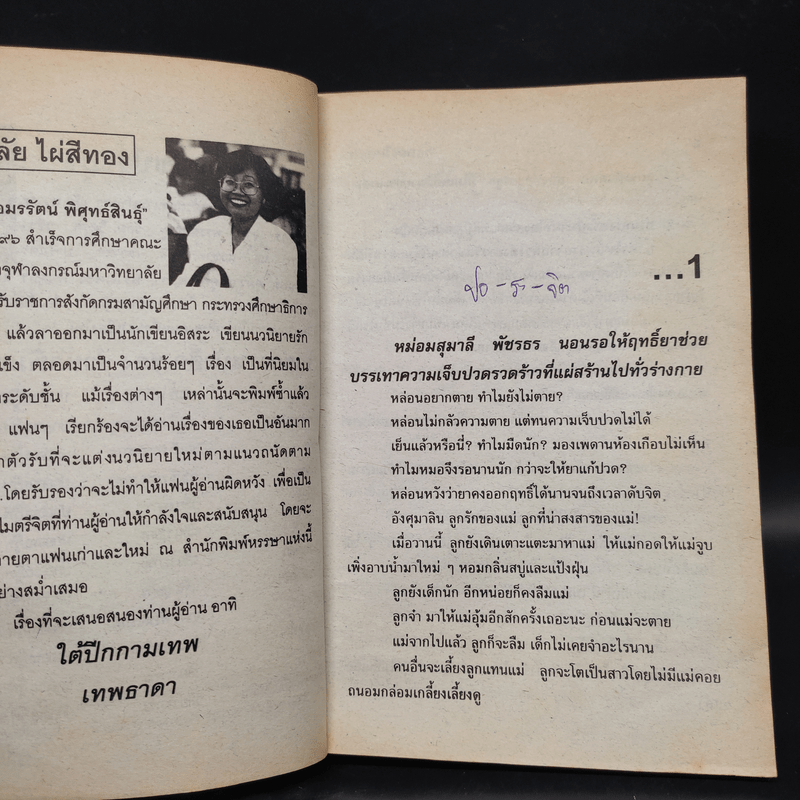 ลัย ไผ่สีทอง
อมรรัตน์ พิศุทธ์สินธุ์"
๙๖ สำเร็จการศึกษาคณะ
จุฬาลงกรณ์มหาวิทยาลัย
รับราชการสังกัดกรมสามัญศึกษา กระทรวงศึกษาธิการ
แล้วลาออกมาเป็นนักเขียนอิสระ เขียนนวนิยายรัก
แข็ง ตลอดมาเป็นจำนวนร้อยๆ เรื่อง เป็นที่นิยมใน
ระดับชั้น แม้เรื่องต่างๆ เหล่านั้นจะพิมพ์ซ้ำแล้ว
แฟนๆ เรียกร้องจะได้อ่านเรื่องของเธอเป็นอันมาก
ตัวรับที่จะแต่งนวนิยายใหม่ตามแนวถนัดตาม
.โดยรับรองว่าจะไม่ทำให้แฟนผู้อ่านผิดหวัง เพื่อเป็น
ไมตรีจิตที่ท่านผู้อ่านให้กำลังใจและสนับสนุน โดยจะ
ายตาแฟนเก่าและใหม่ ณ สำนักพิมพ์หรรษาแห่งนี้
ย่างสม่ำเสมอ
เรื่องที่จะเสนอสนองท่านผู้อ่าน อาทิ
ใต้ปีกกามเทพ
เทพธาดา
...1
หม่อมสุมาลี พัชรธร นอนรอให้ฤทธิ์ยาช่วย
บรรเทาความเจ็บปวดรวดร้าวที่แผ่สร้านไปทั่วร่างกาย
หล่อนอยากตาย ทำไมยังไม่ตาย?
หล่อนไม่กลัวความตาย แต่ทนความเจ็บปวดไม่ได้
เย็นแล้วหรือนี่? ทำไมมืดนัก? มองเพดานห้องเกือบไม่เห็น
ทำไมหมอจึงรอนานนัก กว่าจะให้ยาแก้ปวด?
หล่อนหวังว่ายาคงออกฤทธิ์ได้นานจนถึงเวลาดับจิต
อังศุมาลิน ลูกรักของแม่ ลูกที่น่าสงสารของแม่!
เมื่อวานนี้ ลูกยังเดินเตาะแตะมาหาแม่ ให้แม่กอดให้แม่จูบ
เพิ่งอาบน้ำมาใหม่ ๆ หอมกลิ่นสบู่และแป้งฝุ่น
ลูกยังเด็กนัก อีกหน่อยก็คงลืมแม่
ลูกจ๋า มาให้แม่อุ้มอีกสักครั้งเถอะนะ ก่อนแม่จะตาย
แม่จากไปแล้ว ลูกก็จะลืม เด็กไม่เคยจำอะไรนาน
คนอื่นจะเลี้ยงลูกแทนแม่ ลูกจะโตเป็นสาวโดยไม่มีแม่คอย
ถนอมกล่อมเกลี้ยงเลี้ยงดู